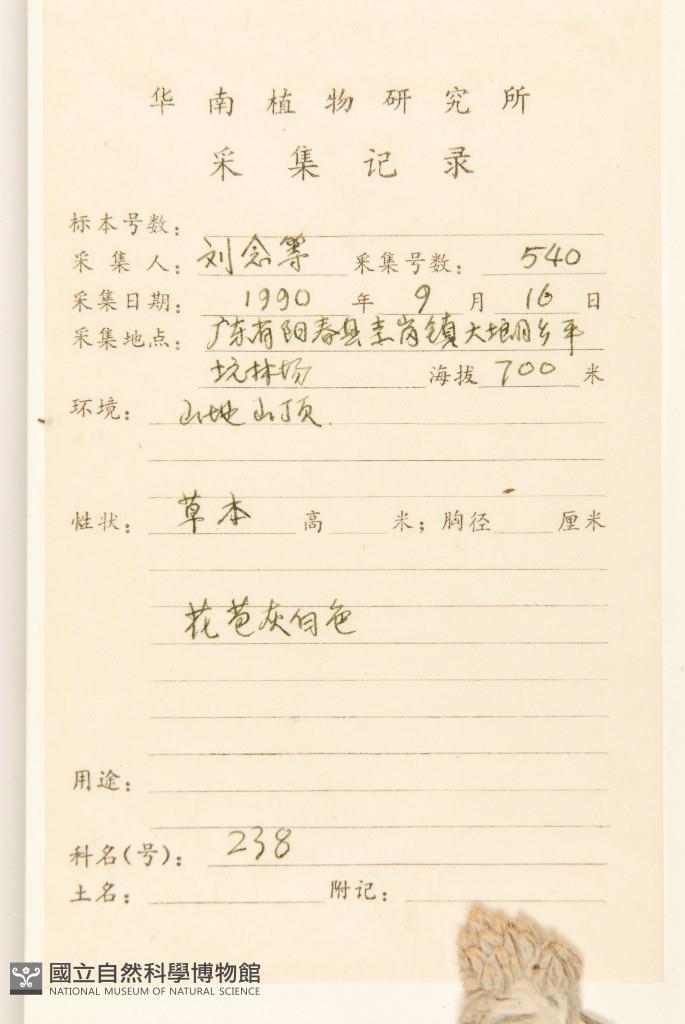 华南植物研究所
采集记录
标本号数：
采集人：刘念等 采集号数：540
采集日期：1990年9月16日
采集地点：广东省阳春县 岗镇大垌乡平
坑林场 海拔700米
环境：山地山顶.
性状：草本 高 米；胸径 厘米
花苞灰白色
用途：
科名(号)：238
土名： 附记：
國立自然科學博物館
NATIONAL MUSEUM OF NATURAL SCIENCE